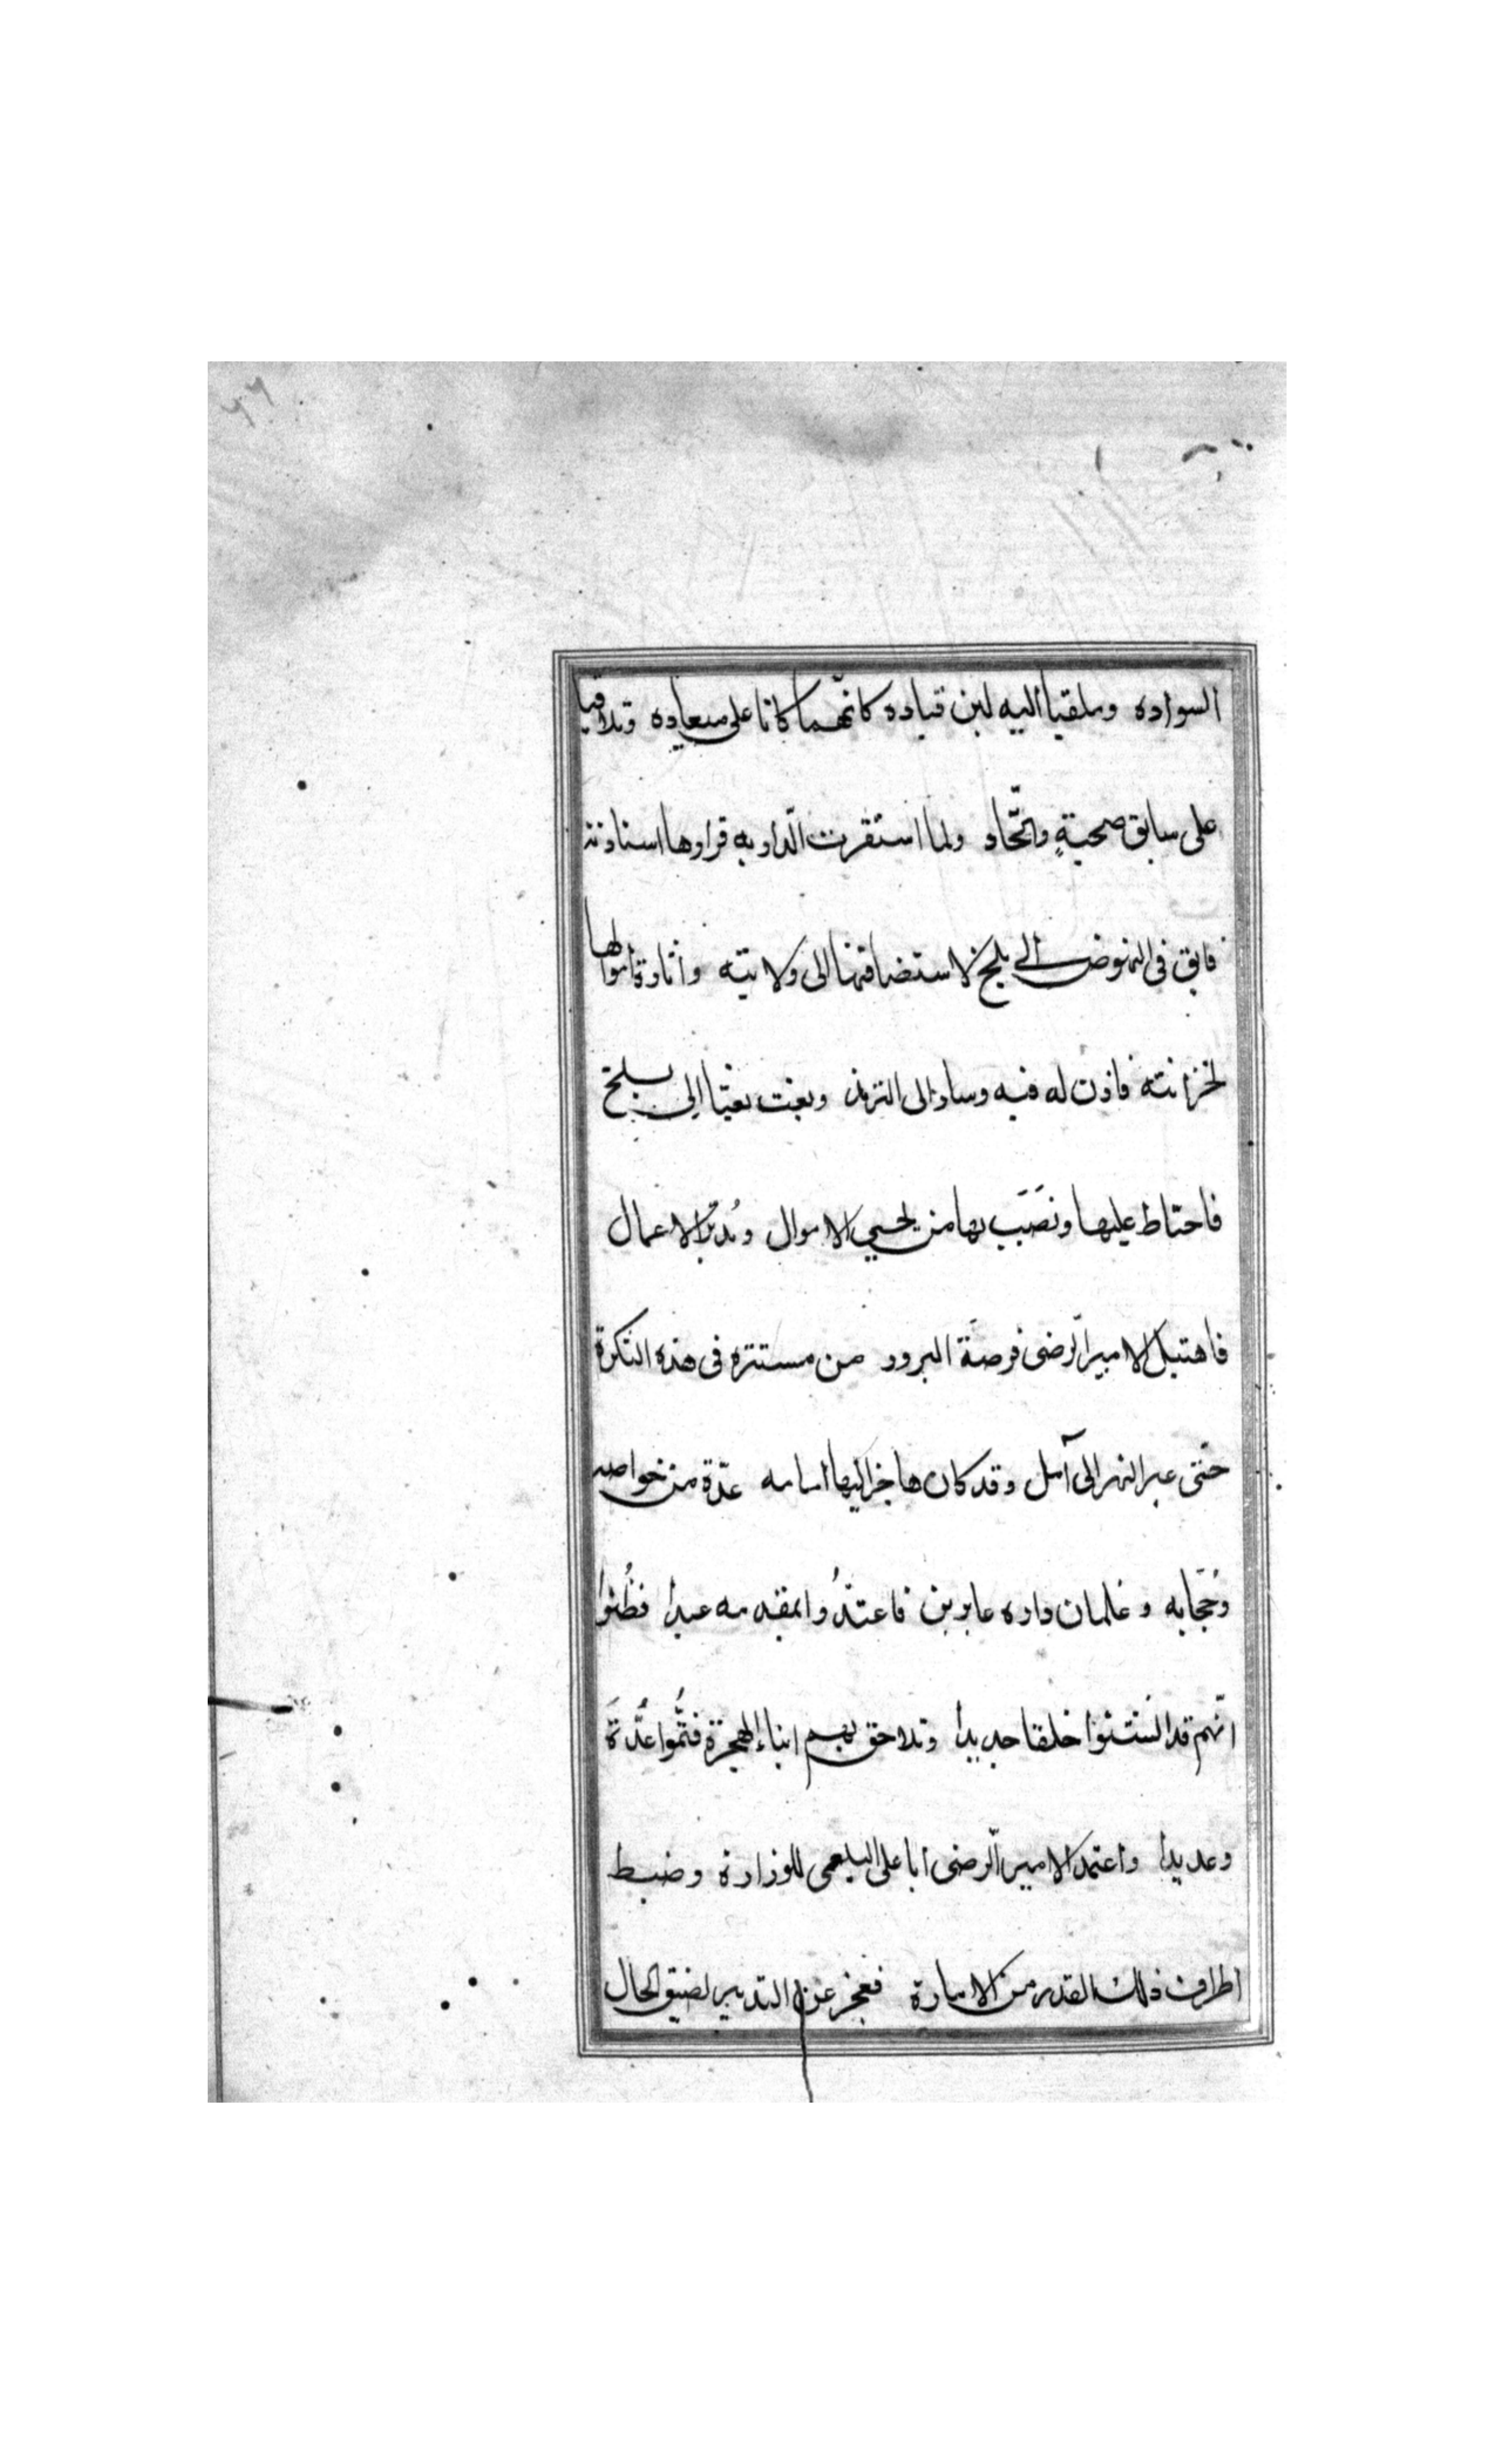 السواده وملقيا اليه لين قياده كانّهما كانا على ميعاده وتلاقيا
على سابق صحبةٍ واتّحاد ولما استقرت الدار به قرارها استاذنه
فايق فى النهوض الى بلخ لاستضافتها الى ولايته واثارة اموالها
لخزانته فاذن له فيه وسار الى الترمذ وبعث بعثا الى بلخ
فاحتاط عليها ونَصَبَ بها من يجبي الاموال ويُدبّر الاعمال
فاهتبل الامير الرضى فرصة البروز من مستتره فى هذه النكرة
حتى عبر النهر الى آمل وقد كان هاجر اليها امامه عدّة من خواصه
وحُجّابه وغلمان داره عابرين فاعتدُّوا بمقدمه عيدا فظُنوا
انّهم قد انستنوا خلقا جديدا وتلاحق بهم ابناء الهجرة فتمُّوا عُدّة
وعديدا واعتمد الامير الرضى ابا على البلعمى للوزارة وضبط
اطراف ذلك القدر من الامارة فعجز عن التدبير لضيق الحال